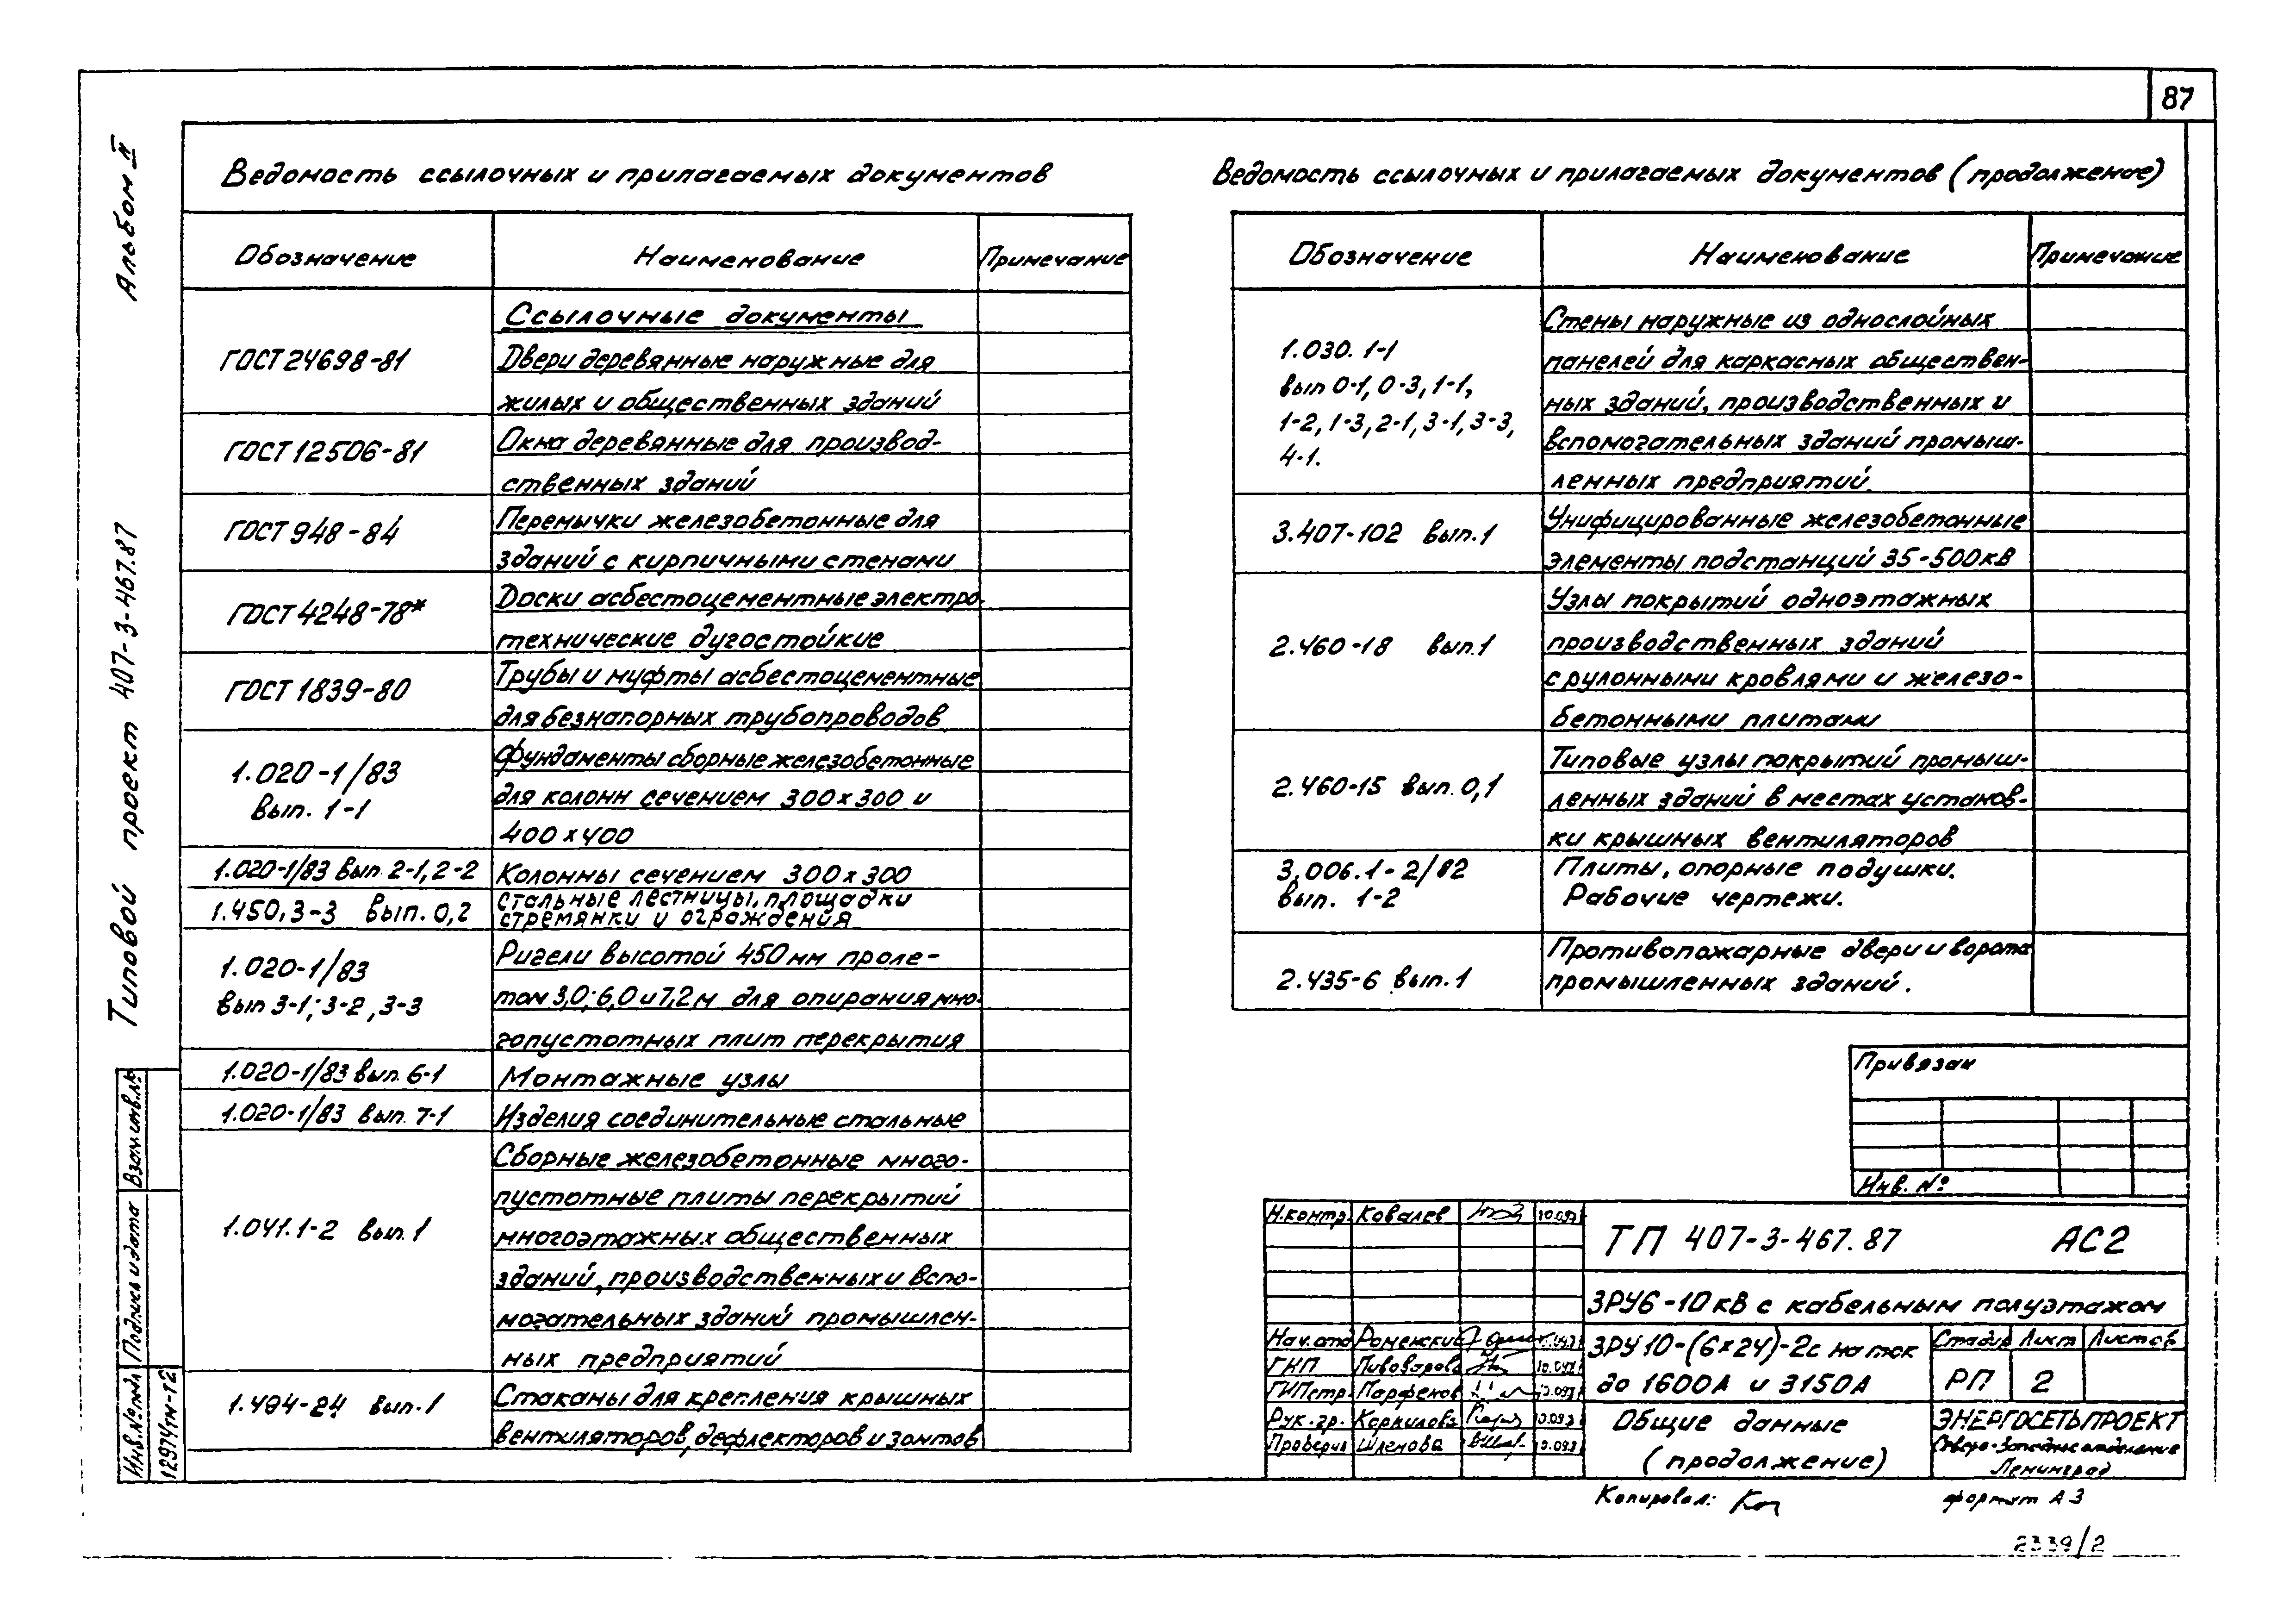 87
Альбом II
Типовой проект 407-3-467.87
Ведомость ссылочных и прилагаемых документов
Обозначение Наименование Примечание
Ссылочные документы
ГОСТ 24698-81 Двери деревянные наружные для
жилых и общественных зданий
ГОСТ 12506-81 Окна деревянные для производ-
ственных зданий
ГОСТ 948-84 Перемычки железобетонные для
зданий с кирпичными стенами
ГОСТ 4248-78* Доски асбестоцементные электро-
технические дугостойкие
ГОСТ 1839-80 Трубы и муфты асбестоцементные
для безнапорных трубопроводов
1.020-1/83
вып. 1-1
Фундаменты сборные железобетонные
для колонн сечением 300х300 и
400х400
1.020-1/83 вып. 2-1, 2-2 Колонны сечением 300х300
1.450.3-3 вып. 0,2 стальные лестницы, площадки
стремянки и ограждения
1.020-1/83
вып 3-1; 3-2, 3-3
Ригели высотой 450мм проле-
том 3,0; 6,0 и 7,2м для опирания мно-
гопустотных плит перекрытия
1.020-1/83 вып. 6-1 Монтажные узлы
1.020-1/83 вып. 7-1 Изделия соединительные стальные
1.041.1-2 вып. 1
Сборные железобетонные много-
пустотные плиты перекрытий
многоэтажных общественных
зданий, производственных и вспо-
могательных зданий промышлен-
ных предприятий
1.494-24 вып. 1 Стаканы для крепления крышных
вентиляторов, дефлекторов и зонтов
Ведомость ссылочных и прилагаемых документов (продолжение)
Обозначение Наименование Примечание
1.030.1-1
вып 0-1, 0-3, 1-1,
1-2, 1-3, 2-1, 3-1, 3-3,
4-1.
Стены наружные из однослойных
панелей для каркасных обществен-
ных зданий, производственных и
вспомогательных зданий промыш-
ленных предприятий.
3.407-102 вып. 1 Унифицированные железобетонные
элементы подстанций 35-500кВ
2.460-18 вып. 1 Узлы покрытий одноэтажных
производственных зданий
с рулонными кровлями и железо-
бетонными плитами
2.460-15 вып. 0,1 Типовые узлы покрытий промыш-
ленных зданий в местах установ-
ки крышных вентиляторов
3.006.1-2/82
вып. 1-2
Плиты, опорные подушки.
Рабочие чертежи.
2.435-6 вып. 1 Противопожарные двери и ворота
промышленных зданий.
Привязан
Инв. №
Н.контр. Ковалев 10.0987
ТП 407-3-467.87 АС2
ЗРУ6-10кВ с кабельным полуэтажом
Нач.отд Роменский
ГИП Пивоварова
ГИПстр. Парфенов
Рук.гр. Коркилова
Проверил Шленова
ЗРУ10-(6х24)-2с на ток
до 1600А и 3150А
Стадия Лист Листов
РП 2
Общие данные
(продолжение)
ЭНЕРГОСЕТЬПРОЕКТ
Северо-Западное отделение
Ленинград
Копировал:
формат А3
2339/2
Взам.инв.№
Подпись и дата
Инв.№ подл
12974тм-т2